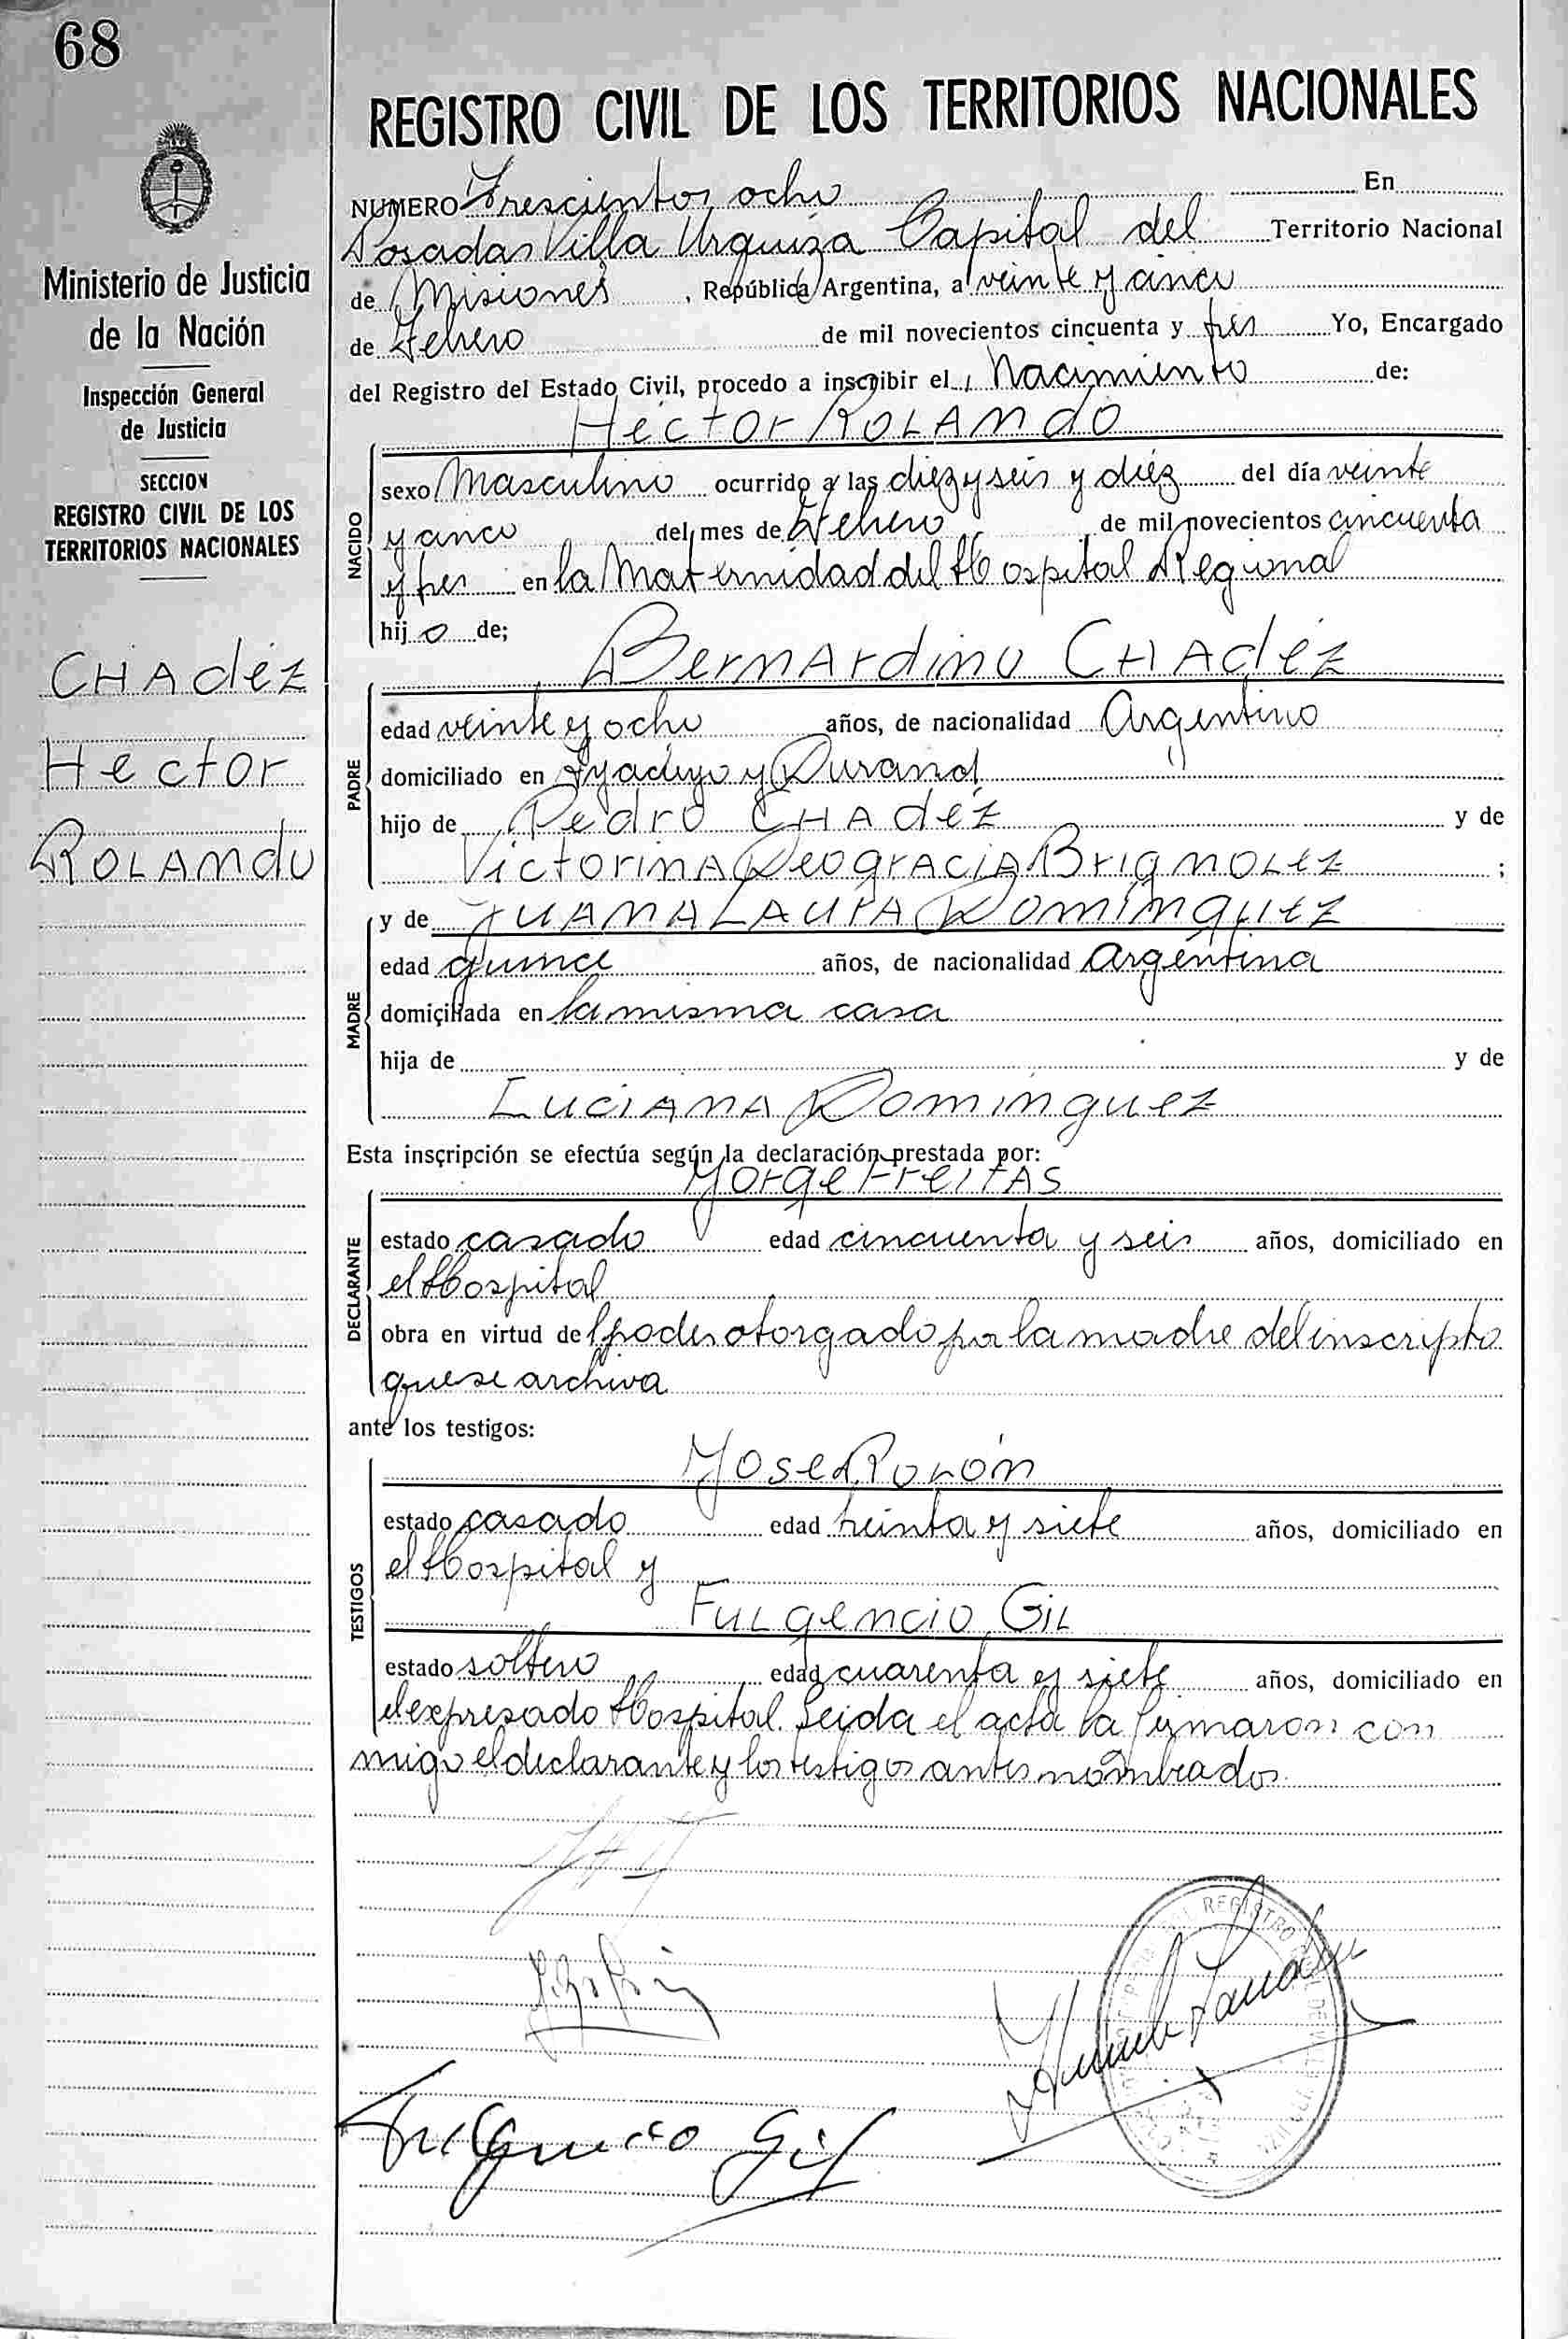 68
Ministerio de Justicia
de la Nación
Inspección General
de Justicia
SECCION
REGISTRO CIVIL DE LOS
TERRITORIOS NACIONALES
CHAdéz
Hector
ROLANdo
REGISTRO CIVIL DE LOS TERRITORIOS NACIONALES
NUMERO Trescientos ocho En
Posadas Villa Urquiza Capital del Territorio Nacional
de Misiones, República Argentina, a veinte y cinco
de Febrero de mil novecientos cincuenta y tres Yo, Encargado
del Registro del Estado Civil, procedo a inscribir el Nacimiento de:
Héctor ROLANdO
NACIDO
sexo Masculino ocurrido a las diez y seis y diéz del día veinte
y cinco del mes de Febrero de mil novecientos cincuenta
y tres en la Maternidad del Hospital Regional
hijo de;
BernArdino CHAdéz
PADRE
edad veinte y ocho años, de nacionalidad Argentino
domiciliado en Ayacuyo y Durand
hijo de Pedro CHAdéz y de
VictoriNA DeogrACiA BrigNOLez ;
MADRE
y de JUANA LAUrA DomíNguez
edad quince años, de nacionalidad Argentina
domiciliada en la misma casa
hija de y de
LuciANA Dominguez
Esta inscripción se efectúa según la declaración prestada por:
DECLARANTE
Jorge FreitAS
estado casado edad cincuenta y seis años, domiciliado en
el Hospital
obra en virtud del poder otorgado por la madre del inscripto
que se archiva
ante los testigos:
TESTIGOS
José Rolón
estado casado edad treinta y siete años, domiciliado en
el Hospital y
FuLgencio GiL
estado soltero edad cuarenta y siete años, domiciliado en
el expresado Hospital. Leida el acta la firmaron con
migo el declarante y los testigos antes nombrados.
REGISTRO
Fulgencio Gil